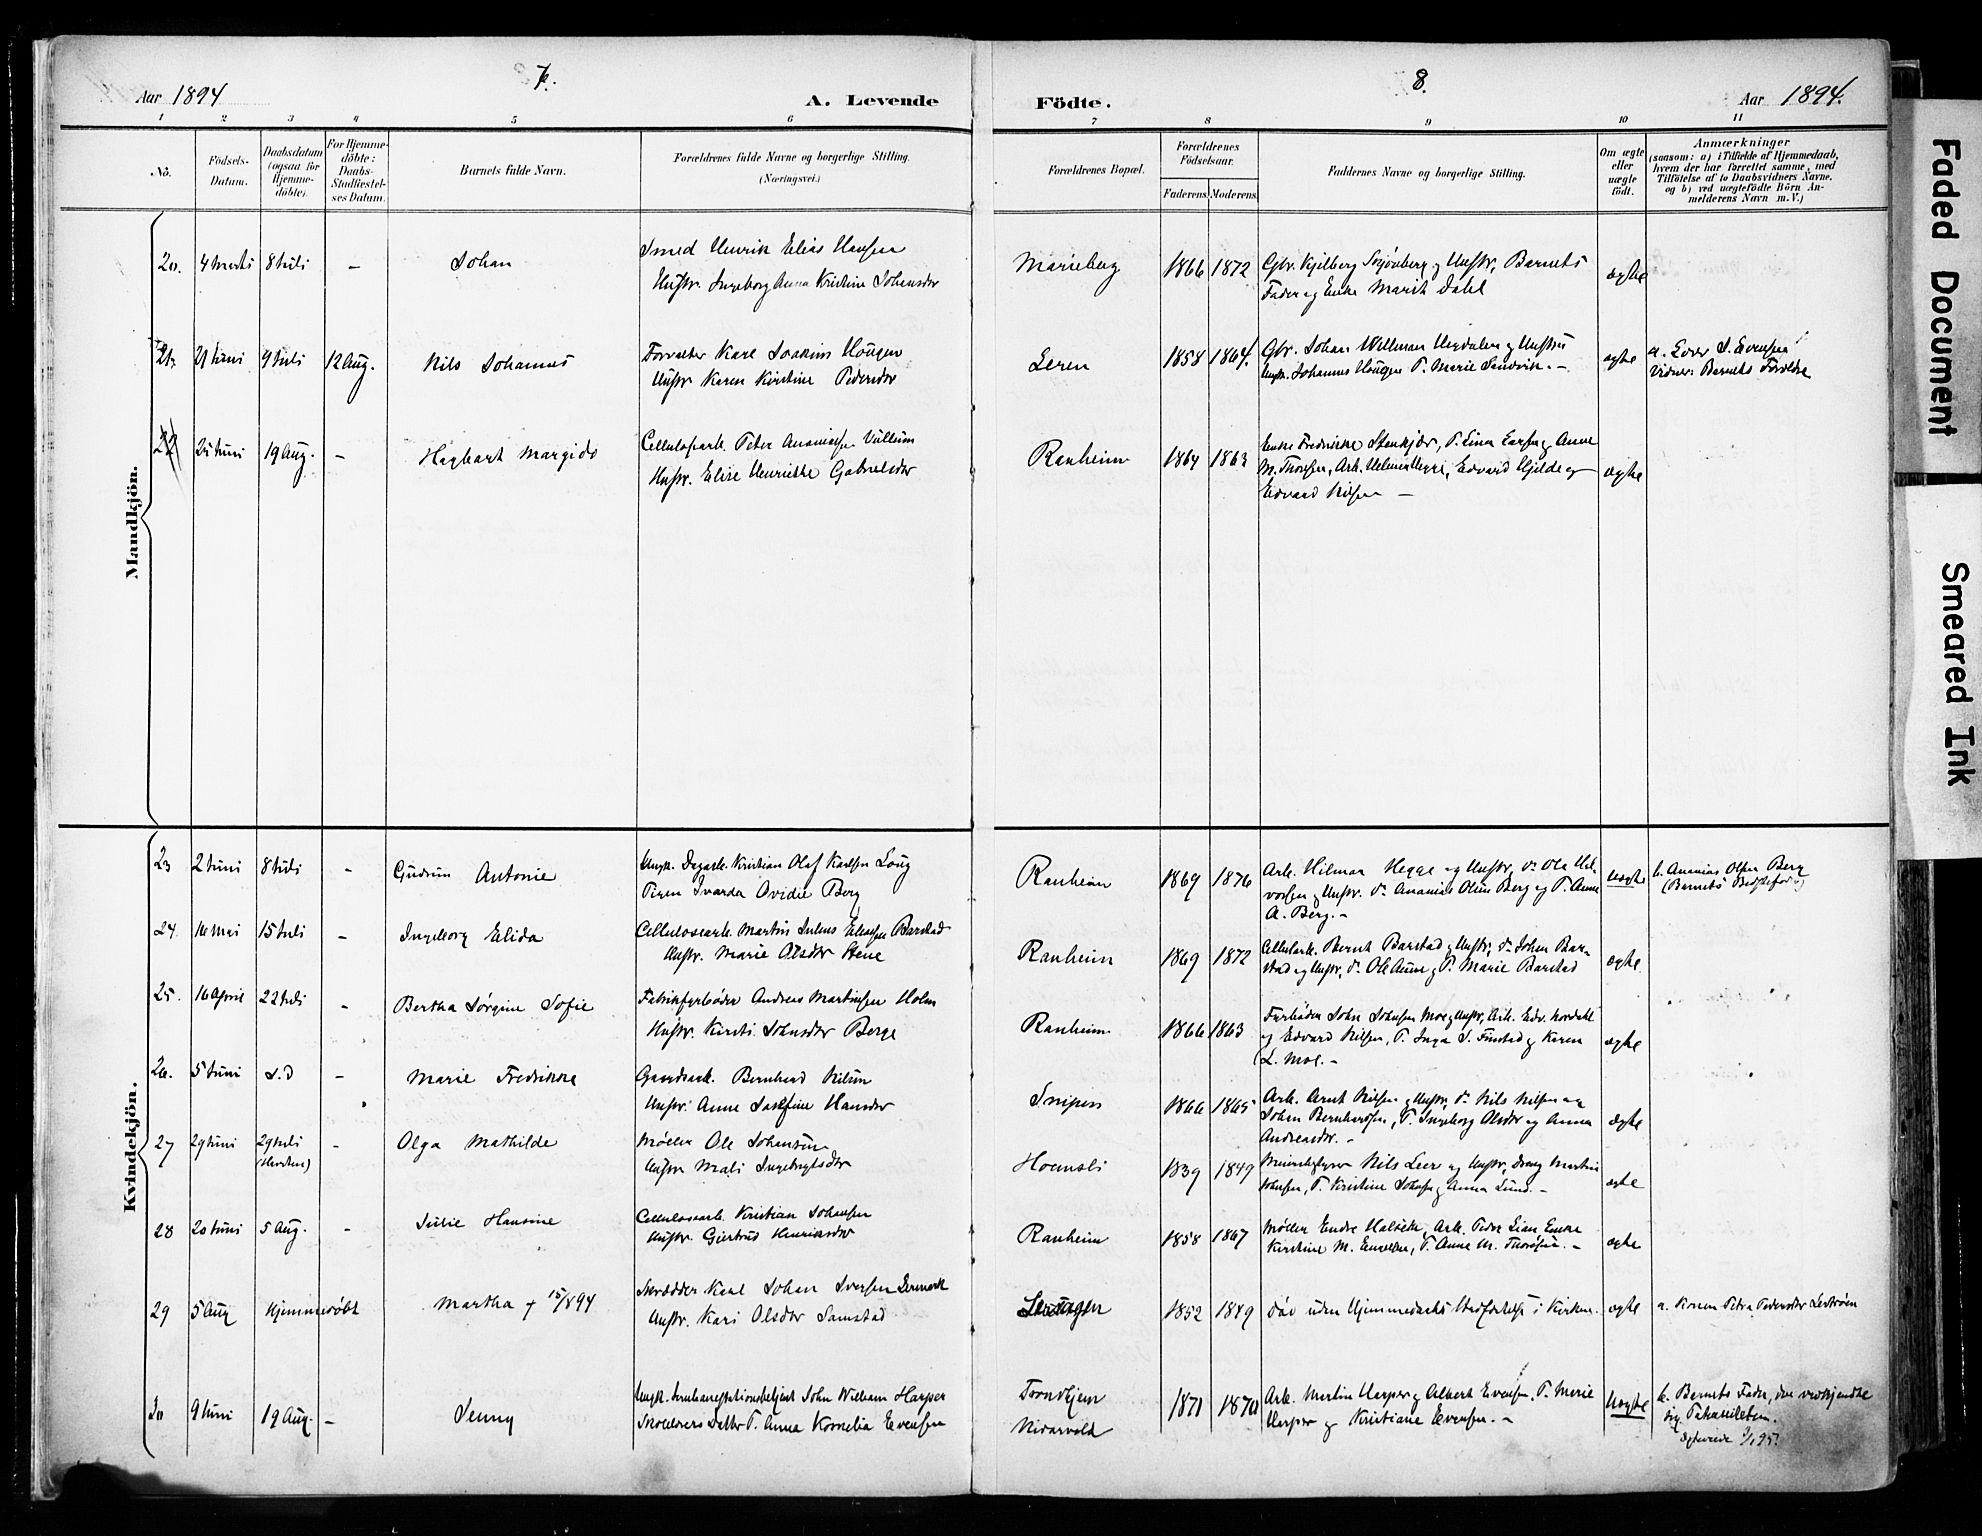 Aar 1894
7.
A. Levende
Födte.
8.
Aar 1894.
1 2 3 4 5 6 7 8 9 10 11
No.
Födsels-
Datum.
Daabsdatum
(ogsaa for
Hjemme-
döbte).
For Hjemme-
döbte:
Daabs-
Stadfæstel-
ses Datum.
Barnets fulde Navn.
Forældrenes fulde Navne og borgerlige Stilling.
(Næringsvei.)
Forældrenes Bopæl.
Forældrenes
Födselsaar.
Faderens Moderens
Faddernes Navne og borgerlige Stilling.
Om ægte
eller
uægte
födt.
Anmærkninger
(saasom: a) i Tilfælde af Hjemmedaab,
hvem der har forrettet samme, med
Tilföielse af to Daabsvidners Navne.
og b) ved uægtefödte Börn An-
melderens Navn m. V.)
Mandkjön.
20. 4 Marts 8 Juli – Johan
Smed Henrik Elias Hansen
Hustr. Ingeborg Anna Kristine Johansdtr
Marieberg 1866 1872
Gbr. Kjelberg Sojönberg og Hustr, Barnets
Fader og Enke Marit Dahl
ægte
21. 21 Juni 9 Juli 12 Aug. Nils Johannes
Forvalter Karl Joakim Hougen
Hustr Karen Kirstine Pedersdtr
Leren 1858 1864.
Gbr. Johan Wellman Uvdalen og Hustru
Ungk. Johannes Hougen P. Marie Sandvik. –
ægte
a. Lærer J. Evensen
Vidner: Barnets Foreldre
22 25 Juni 19 Aug. – Hagbart Margido
Cellulosearb. Peter Ananiasen Vullum
Hustr. Elise Henrikke Gabrielsdtr
Ranheim 1864 1863
Enke Fredrikke Stenkjær, P. Lina Larsen og Anne
M. Thorsen, Arb. Helmer Hegge, Edvard Hjelde og
Edvard Nilsen –
ægte
Kvindekjön.
23 2 Juni 8 Juli – Gudrun Antonie
Ungk. Dagarb. Kristian Olaf Karlsen Loug
Pigen Ivarda Ovidie Berg
Ranheim 1869 1876
Arb. Hilmar Hegge og Hustr, do Ole Hal-
vorsen og Hustr. do Ananias Olsen Berg og P. Anne
A. Berg. –
Uægte
b. Ananias Olsen Berg
(Barnets Bedstefar)
24. 16 Mai 15 Juli – Ingeborg Elida
Cellulosearb. Martin Julius Ellevsen Barstad
Hustr. Marie Olsdtr Stene
Ranheim 1869 1872
Cellulsearb. Bernt Barstad og Hustr, do Johan Bar-
stad og Hustr, do Ole Aune og P. Marie Barstad
ægte
25. 16 April 22 Juli – Bertha Jørgine Sofie
Fabrikfyrbøder Andreas Martinsen Holm
Hustr. Kirsti Johnsdtr Berge
Ranheim 1866 1863
Fyrbøder John Johnsen Moe og Hustr, Arb. Edv. Nordahl
og Edvard Nilsen, P. Inga J. Finstad og Karen
L. Moe. –
ægte
26. 5 Juni s.D – Marie Fredrikke
Gaardsarb. Bernhard Nilsen
Hustr. Anne Josefine Hansdtr
Snipen 1866 1865
Arb. Arnt Nilsen og Hustr, do Nils Nilsen og
Johan Bernhardsen, P. Ingeborg Olsdtr og Anna
Andreasdtr. –
ægte
27 29 Juni 29 Juli – Olga Mathilde
Møller Ole Johansen
Hustr Mali Ingebrigtsdtr
Hoemsli 1839 1849
Meieribestyrer Nils Leer og Hustr, Dreng Martin
Johnsen, P. Kristine Johnsen og Anna Lund. –
ægte
28 20 Juni 5 Aug. – Julie Hansine
Cellulosearb. Kristian Johansen
Hustr. Gjertrud Henriksdtr
Ranheim 1858 1867
Møller Endre Halseth, Arb. Peder Lian, Enke
Kirstine M. Engelsen, P. Anne M. Thorsen. –
ægte
29 5 Aug Hjemmedøbt Martha † 15/8 94
Skrædder Karl Johan Iversen Lermark
Hustr. Kari Olsdtr Samstad
1852 1849
Død uden Hjemmedaabs Stadfæstelse i Kirken.
ægte
a. Konen Petra Pedersdtr Lerstrøen
30 9 Juni 19 Aug. – Jenny
Ungk. Jernbanestationsbetjent John William Harper
Skolelærers Datter P. Anna Kornelia Evensen
Trondhjem
Nidarvold
1871 1870
Arb. Martin Harper og Albert Evensen, P. Marie
Harper og Kristiane Evensen. –
Uægte
b. Barnets Fader, der vedkjendte
sig Paterniteten.
Faded Document
Smeared Ink